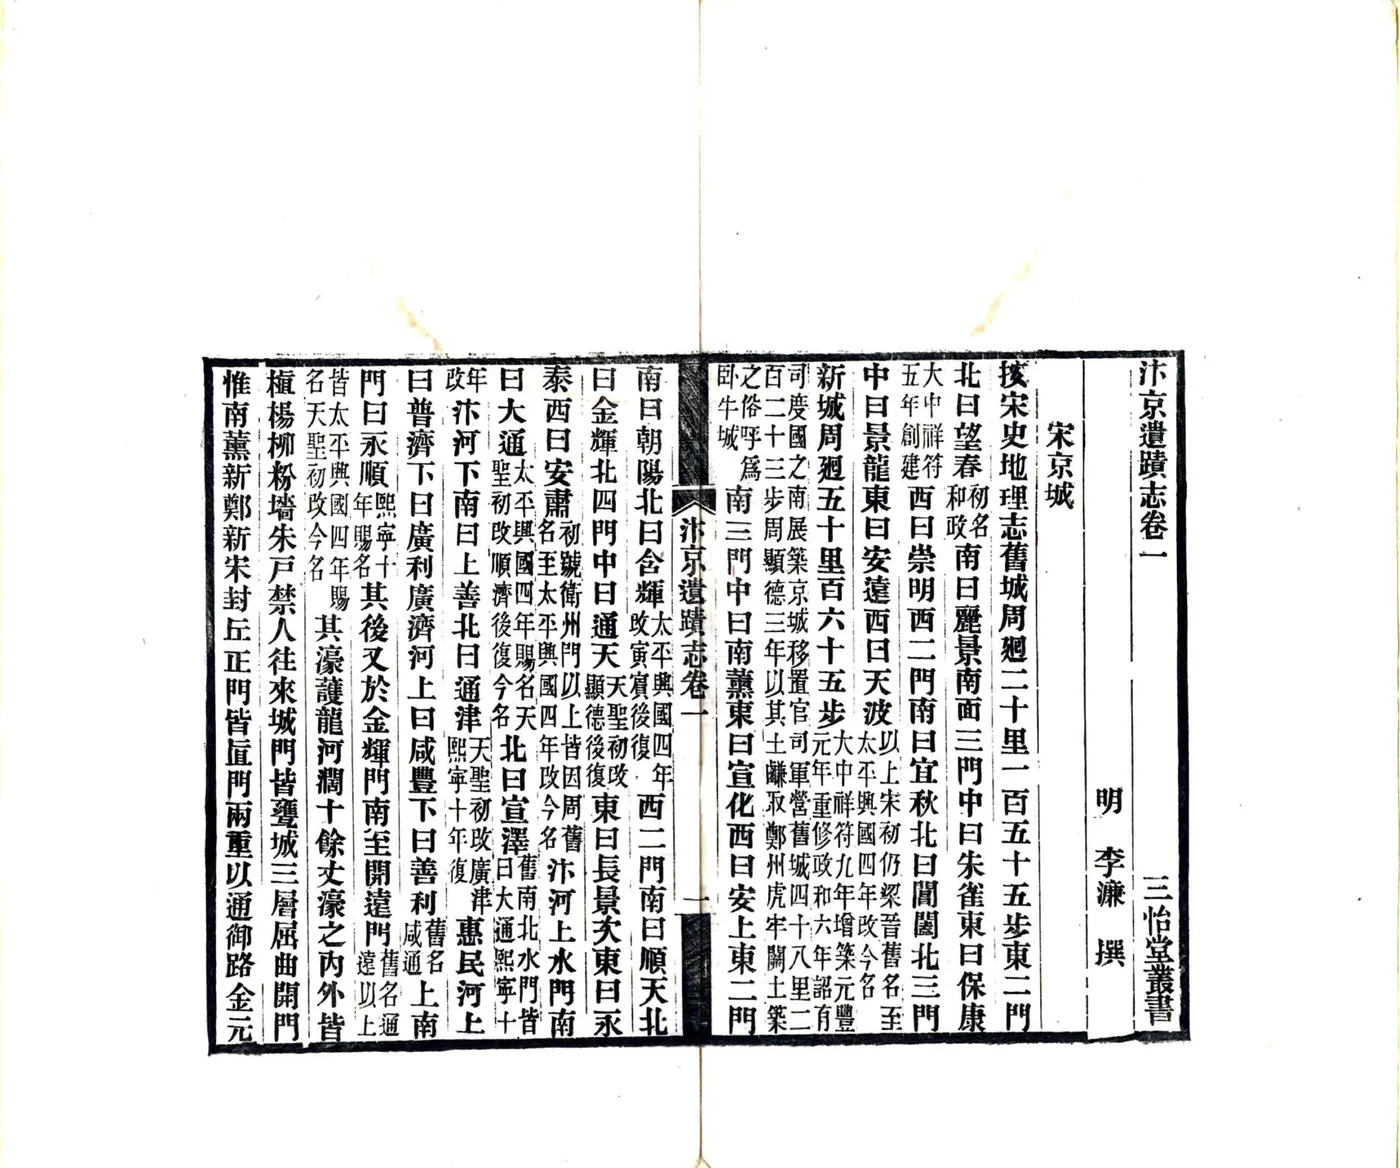 汴京遺蹟志卷一 三怡堂叢書
明 李濂 撰
宋京城
按宋史地理志舊城周廻二十里一百五十五步東二門
北曰望春初名和政南曰麗景南面三門中曰朱雀東曰保康
大中祥符五年創建西曰崇明西二門南曰宜秋北曰閶闔北三門
中曰景龍東曰安遠西曰天波以上宋初仍梁晉舊名至太平興國四年改今名
新城周廻五十里百六十五步大中祥符九年增築元豐元年重修政和六年詔有
司度國之南展築京城移置官司軍營舊城四十八里二百二十三步周顯德三年以其土鹻取鄭州虎牢關土築
之俗呼爲臥牛城南三門中曰南薰東曰宣化西曰安上東二門
汴京遺蹟志卷一 一
南曰朝陽北曰含輝太平興國四年改寅賓後復西二門南曰順天北
曰金輝北四門中曰通天天聖初改顯德後復東曰長景次東曰永
泰西曰安肅初號衛州門以上皆因周舊名至太平興國四年改今名汴河上水門南
曰大通太平興國四年賜名天聖初改順濟後復今名北曰宣澤舊南北水門皆曰大通熙寧十
年改汴河下南曰上善北曰通津天聖初改廣津熙寧十年復惠民河上
曰普濟下曰廣利廣濟河上曰咸豐下曰善利舊名咸通上南
門曰永順熙寧十年賜名其後又於金輝門南至開遠門舊名通遠以上
皆太平興國四年賜名天聖初改今名其濠護龍河濶十餘丈濠之內外皆
植楊柳粉墻朱戶禁人往來城門皆甕城三層屈曲開門
惟南薰新鄭新宋封丘正門皆直門兩重以通御路金元